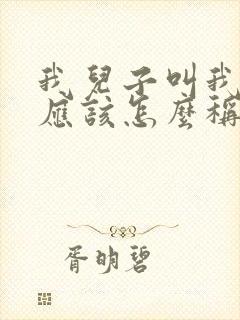 我兒子叫我
應該怎麼稱
胥明碧